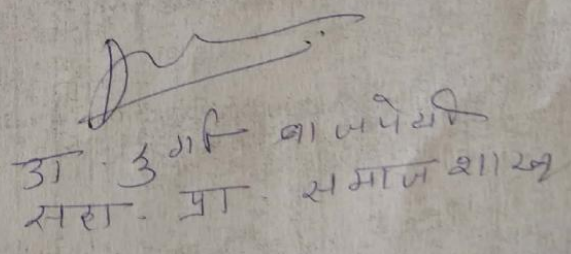 डा. दुर्गा वाजपेयी
सहा. प्रा. समाज शास्त्र